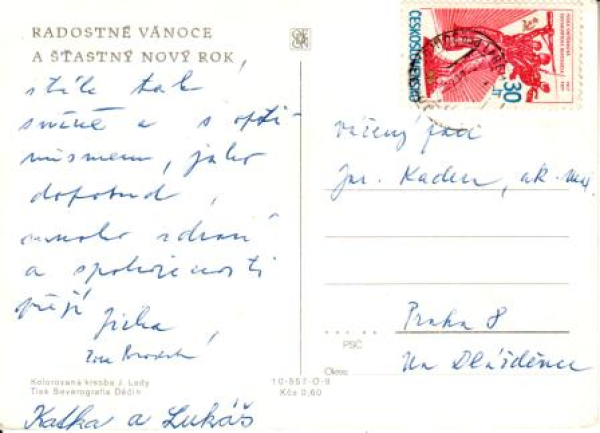 RADOSTNÉ VÁNOCE
A ŠŤASTNÝ NOVÝ ROK,
stále tak
svěže a s opti-
mismem, jako
doposud,
mnoho zdraví
a spokojenosti
přejí Jirka,
Katka a Lukáš
Kolorovaná kresba J. Lady
Tisk Severografia Děčín
10-557-0-9
Kčs 0,60
ČESKOSLOVENSKO
30
Vážený pan
Jar. Kaden, ak. mal.
Praha 8
PSČ
Na Dlážděnce
Okres